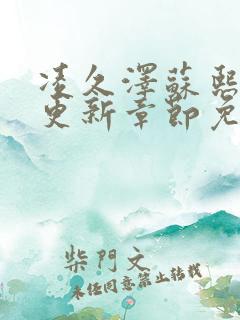 凌久澤蘇熙
更新章節免
柴門文
未经同意禁止转载